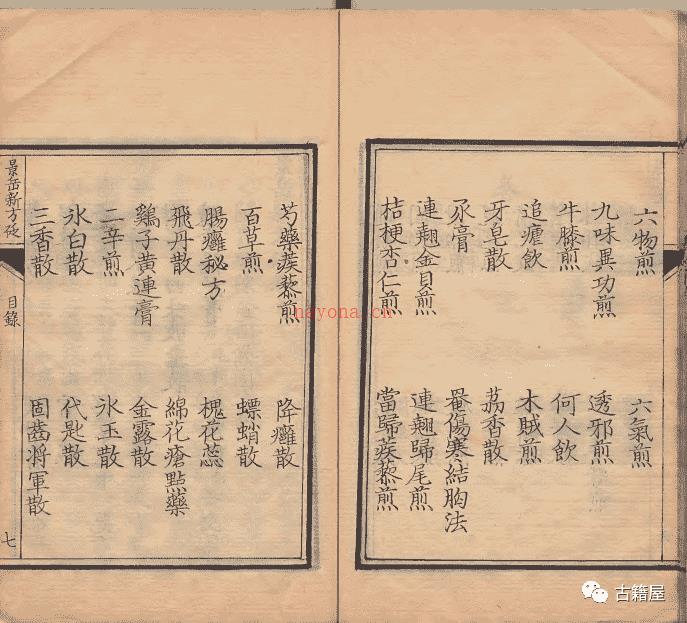 六物煎 六氣煎
九味異功煎 透邪煎
牛膝煎 何人飲
追瘧飲 木賊煎
牙皂散 荔香散
豕膏 罨傷寒結胸法
連翹金貝煎 連翹歸尾煎
桔梗杏仁煎 當歸蒺藜煎
芍藥蒺藜煎 降癰散
百草煎 螵蛸散
腸癰秘方 槐花蕊
飛丹散 綿花瘡點藥
鷄子黃連膏 金露散
二辛煎 氷玉散
氷白散 代匙散
三香散 固齒将軍散
景岳新方砭
目錄
七
hayona.cn
古籍屋